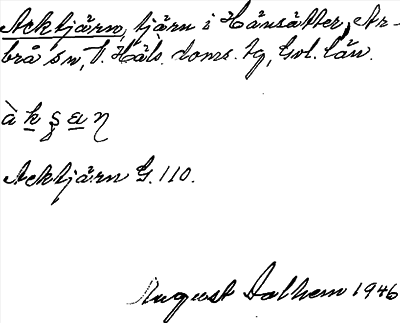 Acktjärn, tjärn i Hänsätter, Ar-
brå sn, V. Häls. doms. tg, Gvl. län.
à k ʂ æ n
Acktjärn G. 110.
August Dalhem 1946